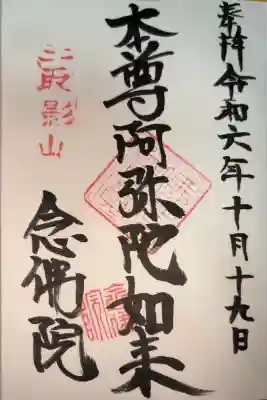 奉拝 令和六年十月十九日
本尊阿弥陀如来
影山
念佛院